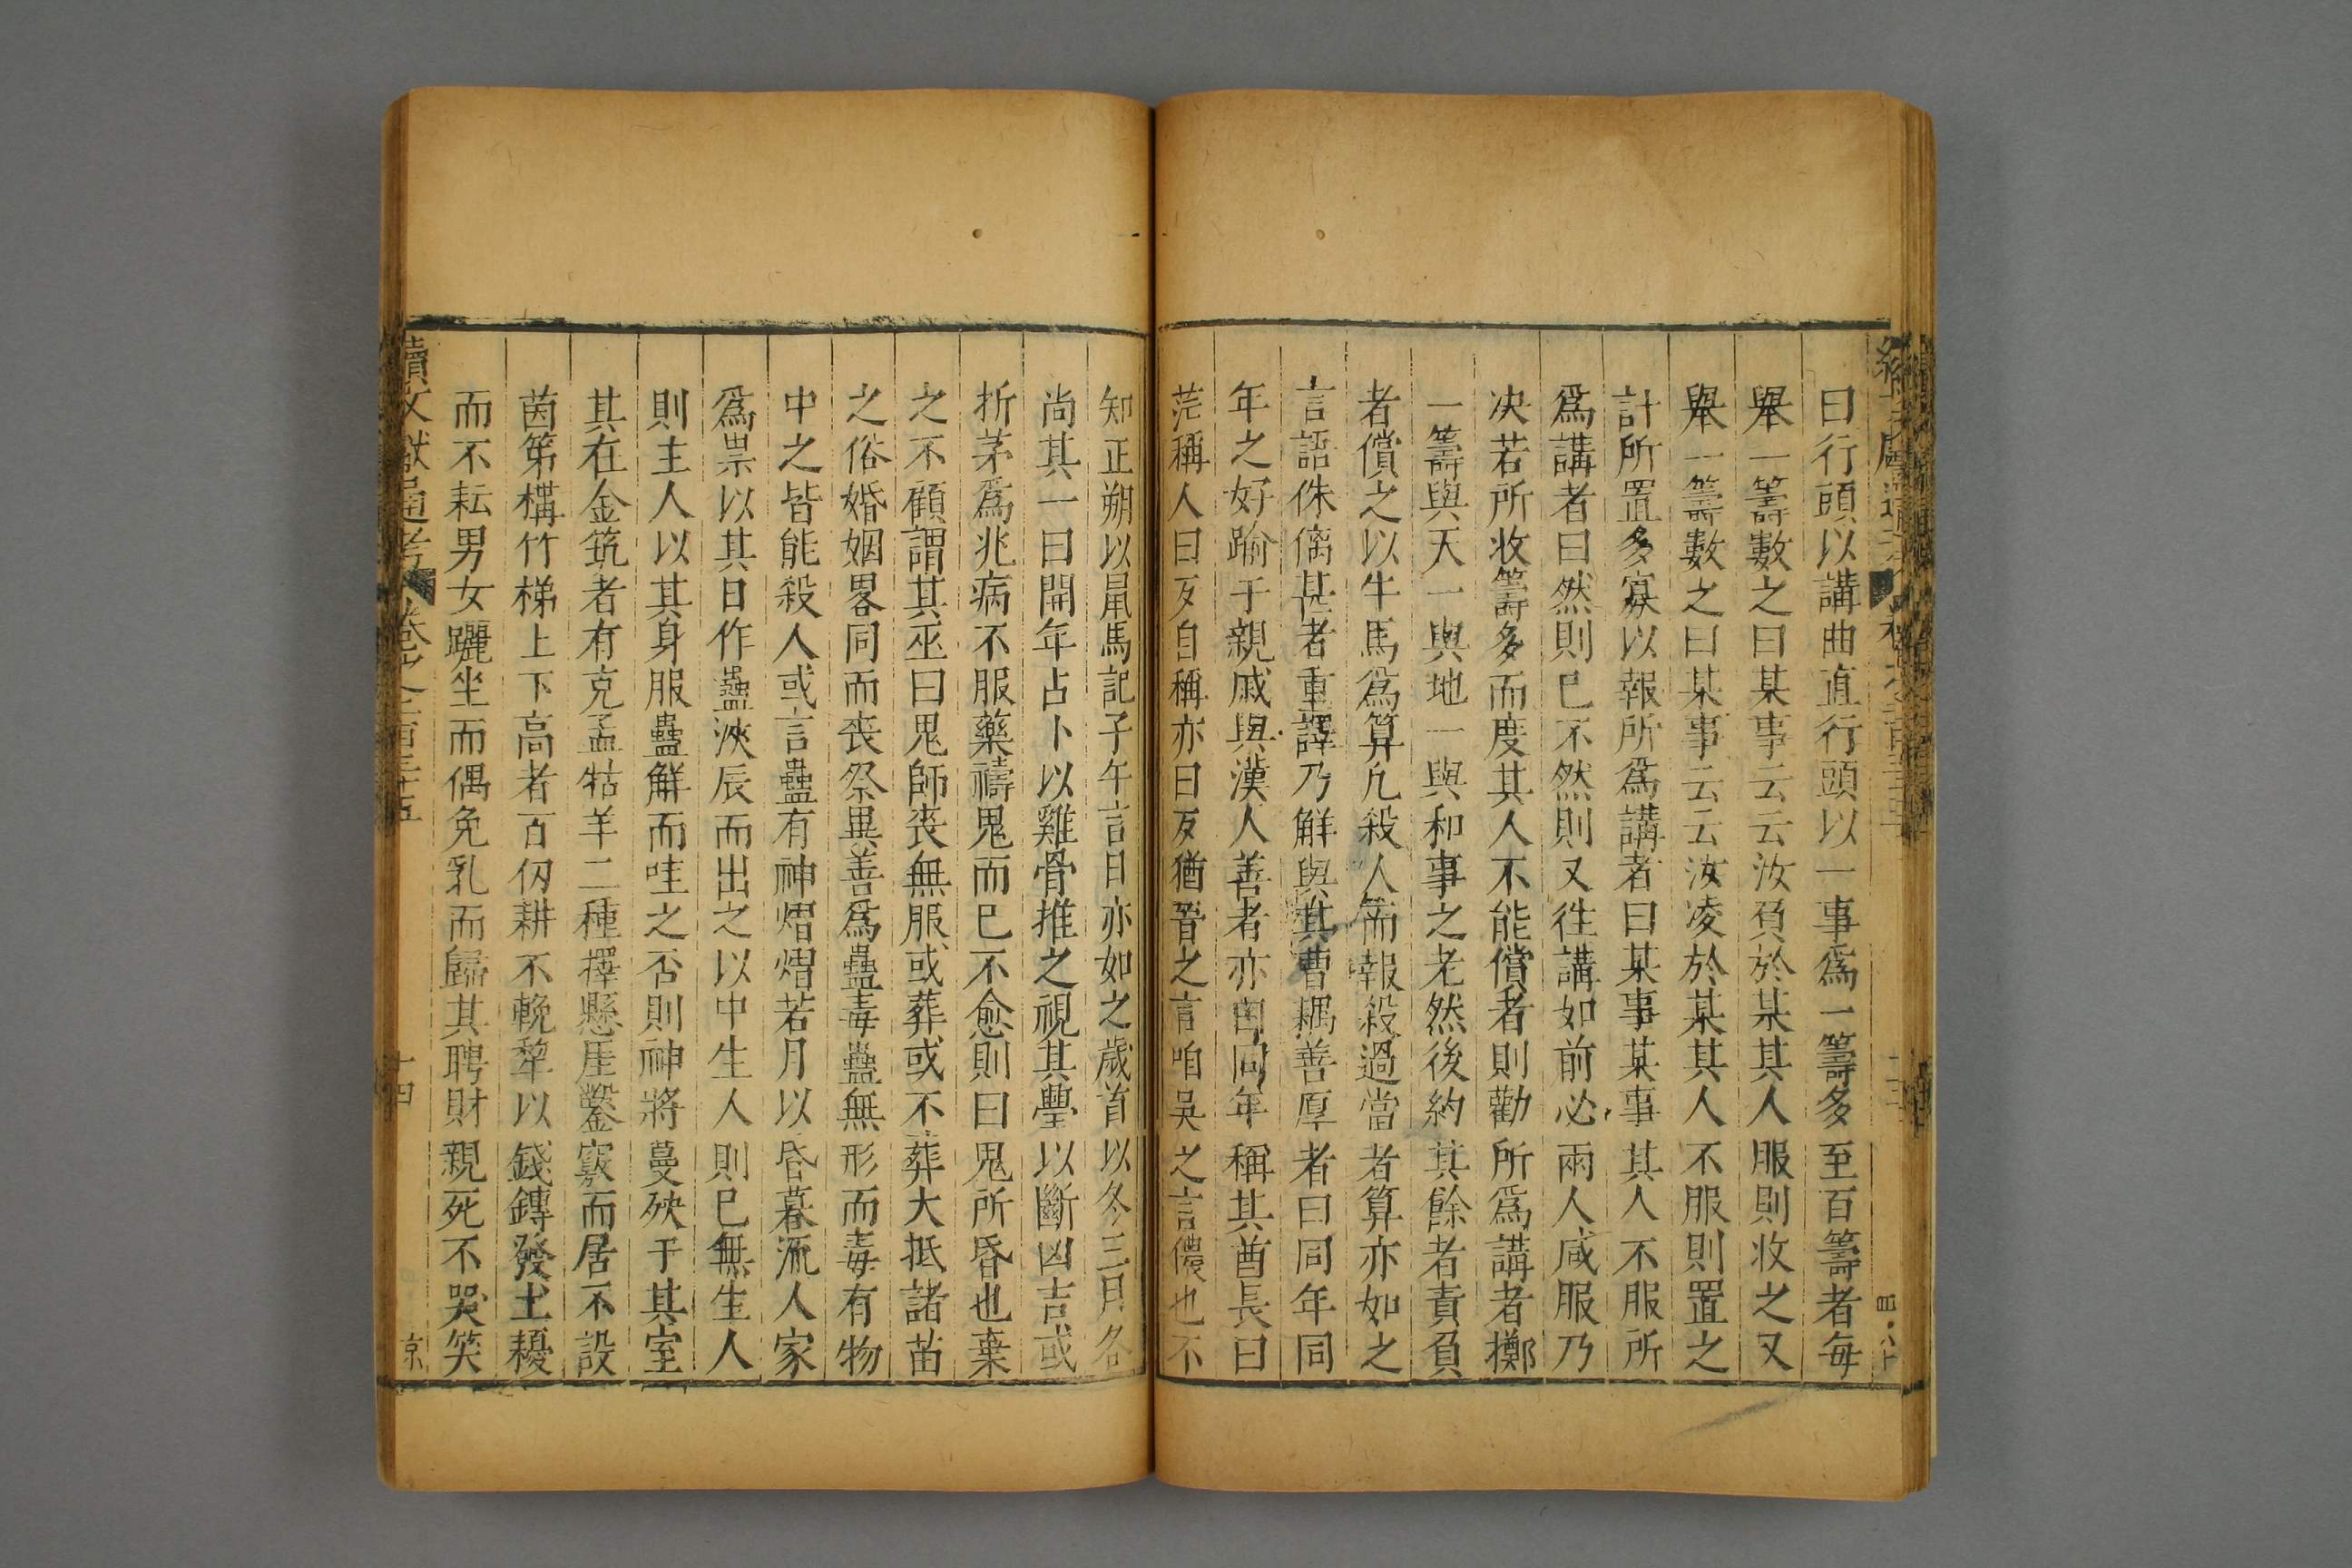 曰行頭以講曲直行頭以一事爲一籌多至百籌者每
舉一籌數之曰某事云云汝負於某其人服則收之又
舉一籌數之曰某事云云汝凌於某其人不服則置之
計所置多寡以報所爲講者曰某事某事其人不服所
爲講者曰然則已不然則又往講如前必兩人咸服乃
决若所收籌多而度其人不能償者則勸所爲講者擲
一籌與天一與地一與和事之老然後約其餘者責負
者償之以牛馬爲算凡殺人而報殺過當者算亦如之
言語侏𠌯甚者重譯乃解與其曹耦善厚者曰同年同
年之好踰于親戚與漢人善者亦曰同年稱其酋長曰
茫稱人曰歹自稱亦曰歹猶晉之言咱吳之言儂也不
知正朔以鼠馬記子午言日亦如之歲首以冬三月各
尚其一曰開年占卜以雞骨推之視其璺以斷凶吉或
折茅爲兆病不服藥禱鬼而已不愈則曰鬼所昏也棄
之不顧謂其巫曰鬼師喪無服或葬或不葬大抵諸苗
之俗婚姻畧同而喪祭異善爲蠱毒蠱無形而毒有物
中之皆能殺人或言蠱有神熠熠若月以昏暮流人家
爲祟以其日作蠱浹辰而出之以中生人則已無生人
則主人以其身服蠱解而哇之否則神將蔓殃于其室
其在金筑者有克孟牯羊二種擇懸崖鑿竅而居不設
茵第構竹梯上下高者百仞耕不輓犂以錢鎛發土耰
而不耘男女躧坐而偶免乳而歸其聘財親死不哭笑
續文獻通考 卷之二百三十五 十四 京